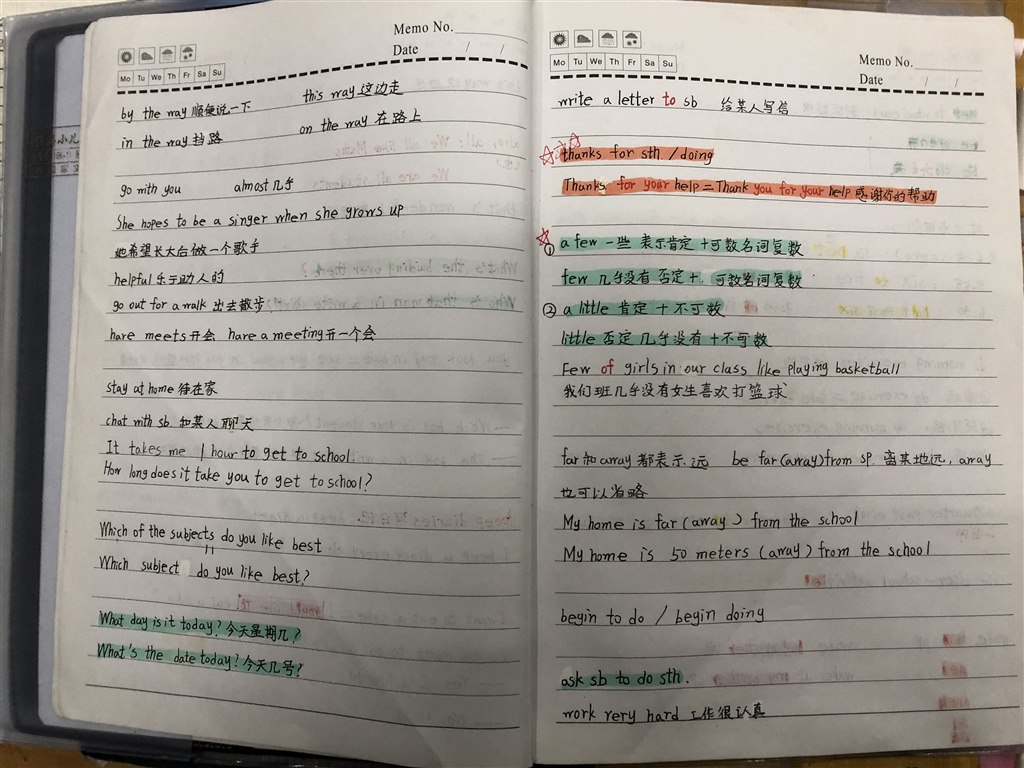 Memo No.
Date / /
Mo Tu We Th Fr Sa Su
by the way 顺便说一下 this way 这边走
in the way 挡路 on the way 在路上
go with you almost 几乎
She hopes to be a singer when she grows up
她希望长大后做一个歌手
helpful 乐于助人的
go out for a walk 出去散步
have meets 开会 have a meeting 开一个会
stay at home 待在家
chat with sb. 和某人聊天
It takes me 1 hour to get to school.
How long does it take you to get to school?
Which of the subjects do you like best
Which subject do you like best?
What day is it today? 今天星期几?
What's the date today? 今天几号?
Memo No.
Date / /
Mo Tu We Th Fr Sa Su
write a letter to sb 给某人写信
thanks for sth / doing
Thanks for your help = Thank you for your help 感谢你的帮助
① a few 一些 表示肯定 + 可数名词复数
few 几乎没有 否定 + 可数名词复数
② a little 肯定 + 不可数
little 否定 几乎没有 + 不可数
Few of girls in our class like playing basketball
我们班几乎没有女生喜欢打篮球
far 和 away 都表示远 be far (away) from sp. 离某地远, away
也可以省略
My home is far (away) from the school
My home is 50 meters (away) from the school
begin to do / begin doing
ask sb to do sth.
work very hard 工作很认真